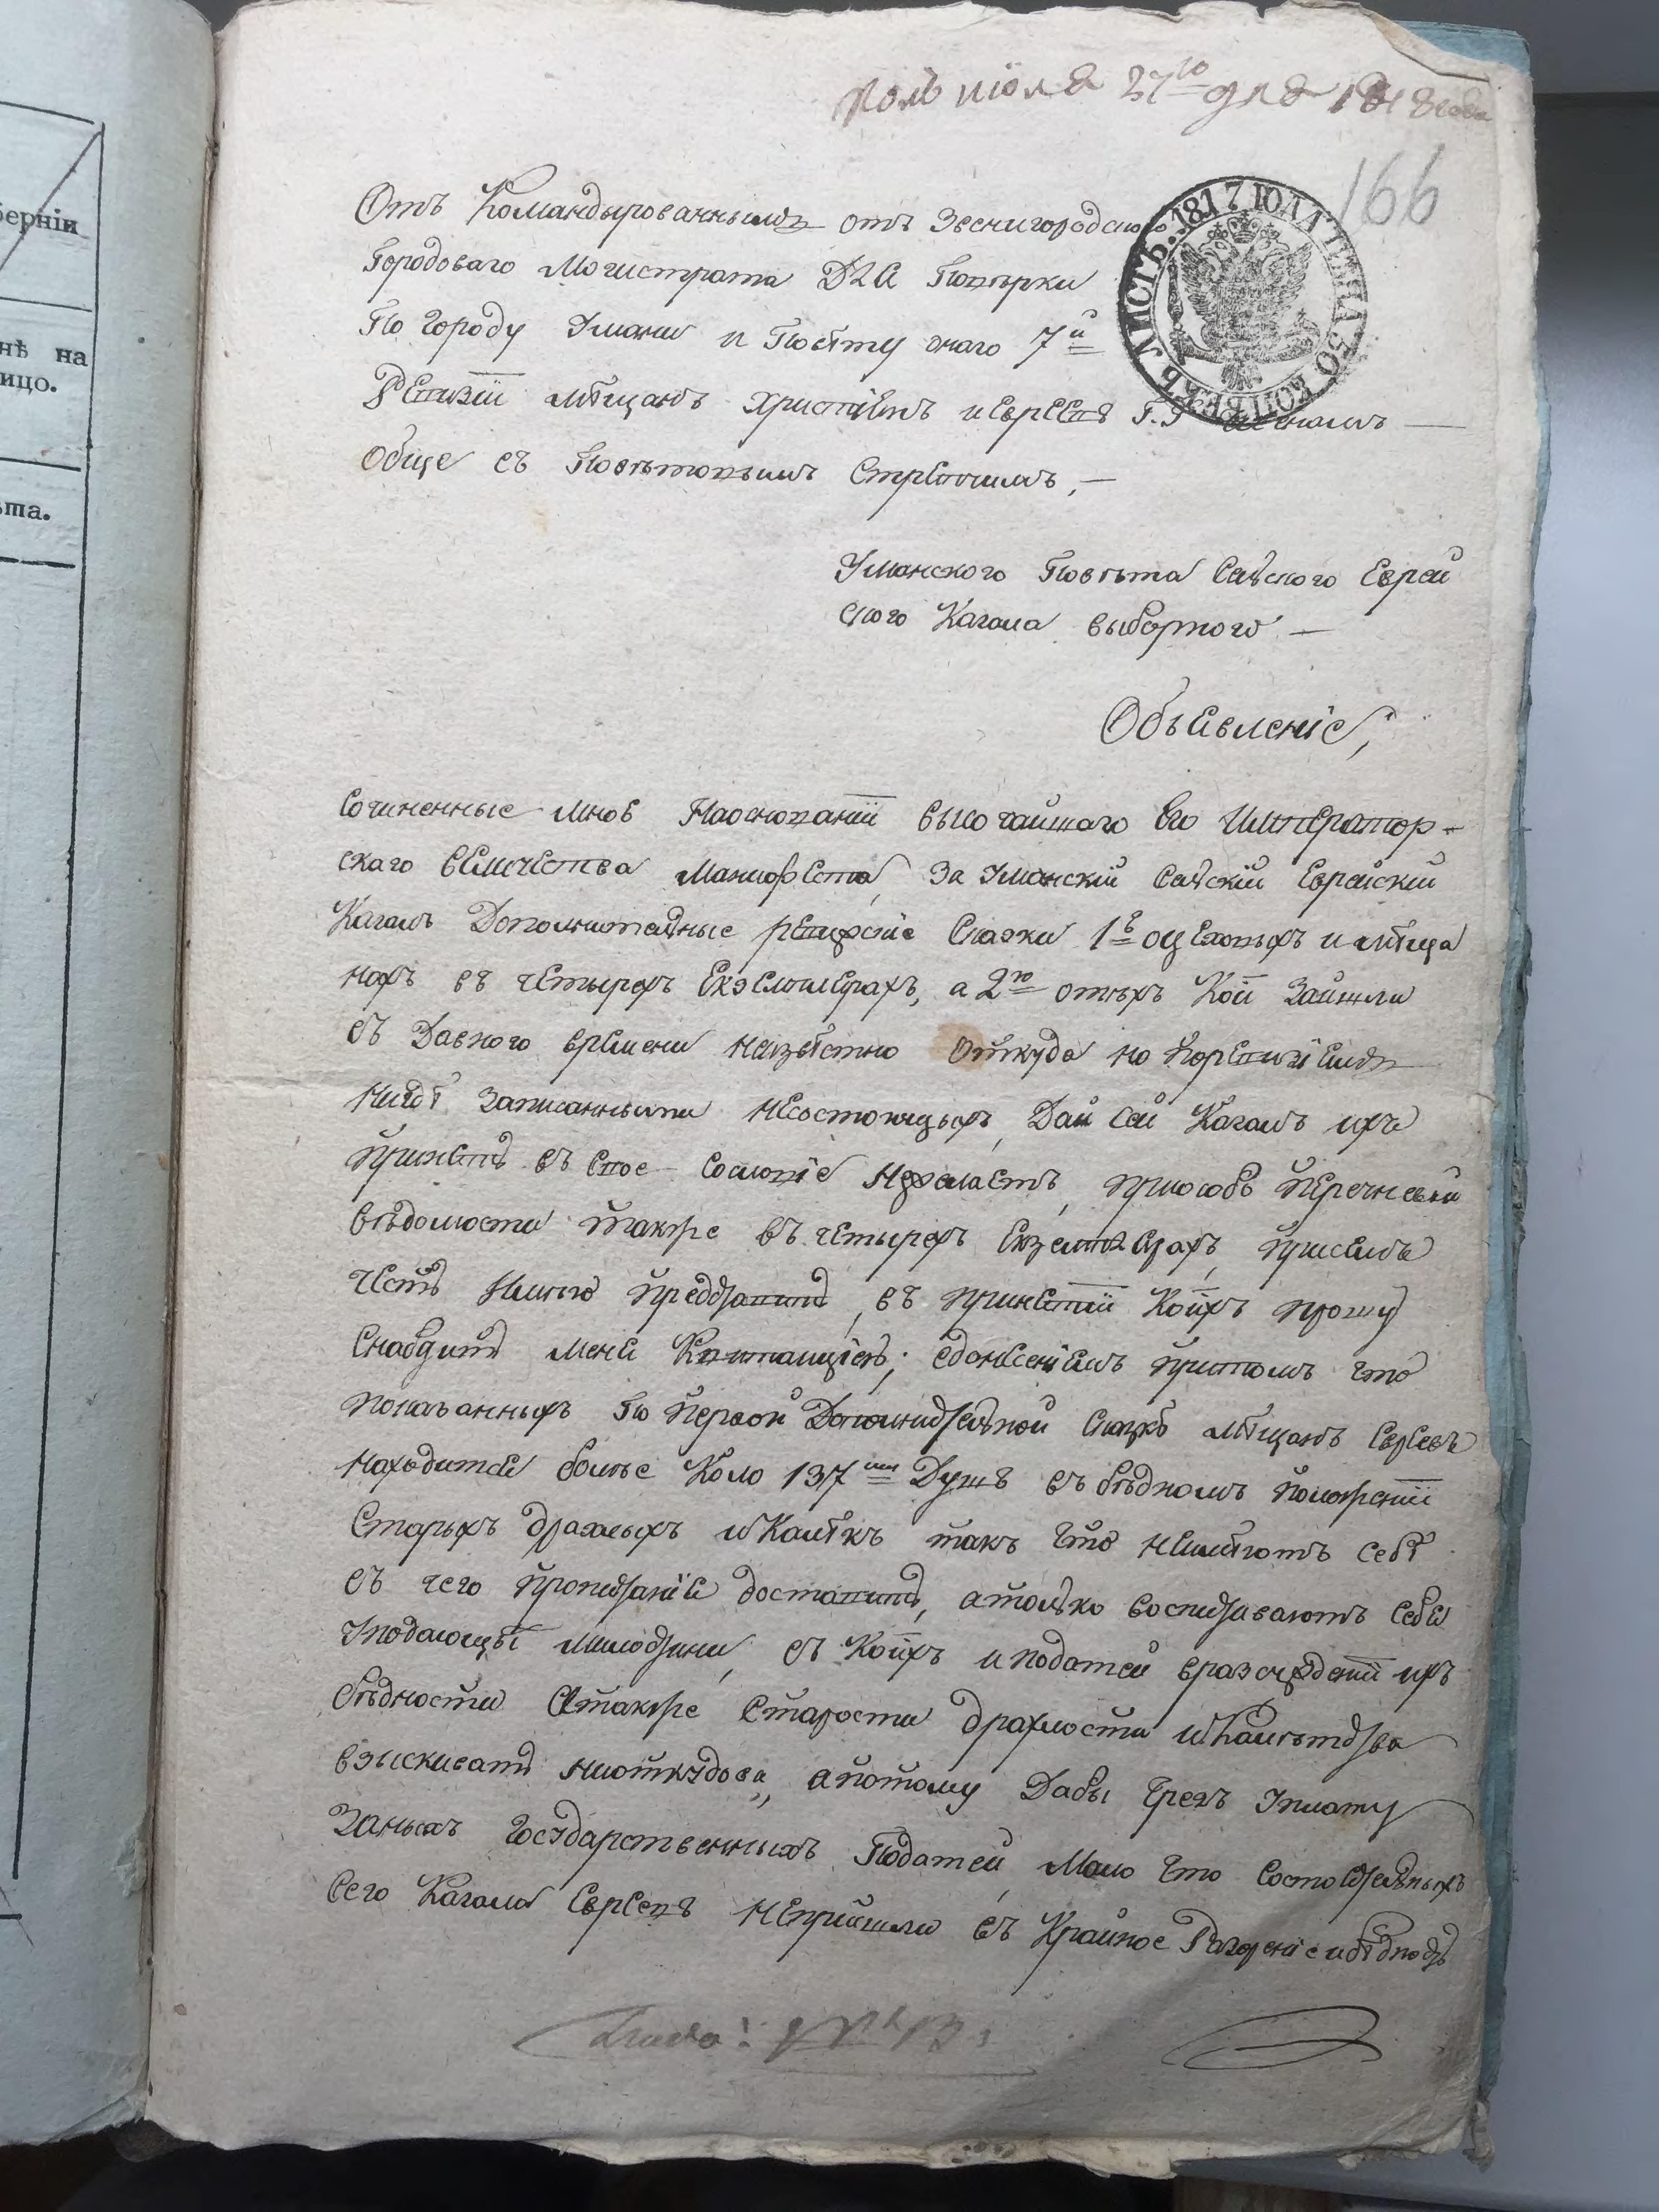 берніи
нѣ на
ицо.
ѣта.
Июля 27го дня 1818 года
166
ЛИСТЪ. 1817 ГОДА. ЦЕНА. 50 КОПѢЕКЪ
Отъ Командированнымъ отъ Звенигородскаго
Городоваго Магистрата Для Поверки
По Городу Умани и Повѣту онаго 7й
Ревизіи мѣщанъ христіянъ и евреевъ Г.Г. Членамъ —
Обще съ Повѣтовымъ Стряпчимъ, —
Уманского Повѣта Сельского Еврей
ского Кагала выборного —
Объявленіе,
Сочиненные мною На основаніи высочайшаго Его Император-
скаго величества Манифеста, За Уманскій Сельскій Еврейскій
Кагалъ Дополнительные ревизскіе Сказки 1е о цеховыхъ и мѣща
нахъ въ четырехъ Екземплярахъ, а 2е о тѣхъ Кои Зайшли
съ Давного времени неизвѣстно откуда но по ревизіямъ
нигдѣ Записанными несостоящихъ, Да и сей Кагалъ ихъ
принять въ свое сословіе нежелаетъ, приособъ перечневой
вѣдомости также въ четырехъ Екземплярахъ, присемъ
честь Имею представить, въ принятіи Коихъ прошу
Снабдить меня Квитанціею; съ донесеніемъ притомъ что
показанныхъ По первой Дополнительной Сказкѣ мѣщанъ Евреевъ
находится более Коло 137ми Душъ въ бѣдномъ положеніи
Старыхъ дряхлыхъ и Калѣкъ такъ что неимѣютъ себѣ
съ чего пропитаніе доставить, а только воспитываютъ себя
подающей милостини, съ Коихъ и податей в разсужденіи ихъ
бѣдности А также Старости дряхлости и Калѣцтва
взыскивать ниоткудова, а потому Дабы чрезъ Уплату
Заныхъ Государственныхъ Податей, Мало что Состоятельныхъ
Сего Кагала Евреевъ неприйшли въ Крайное Разореніе и бѣдность